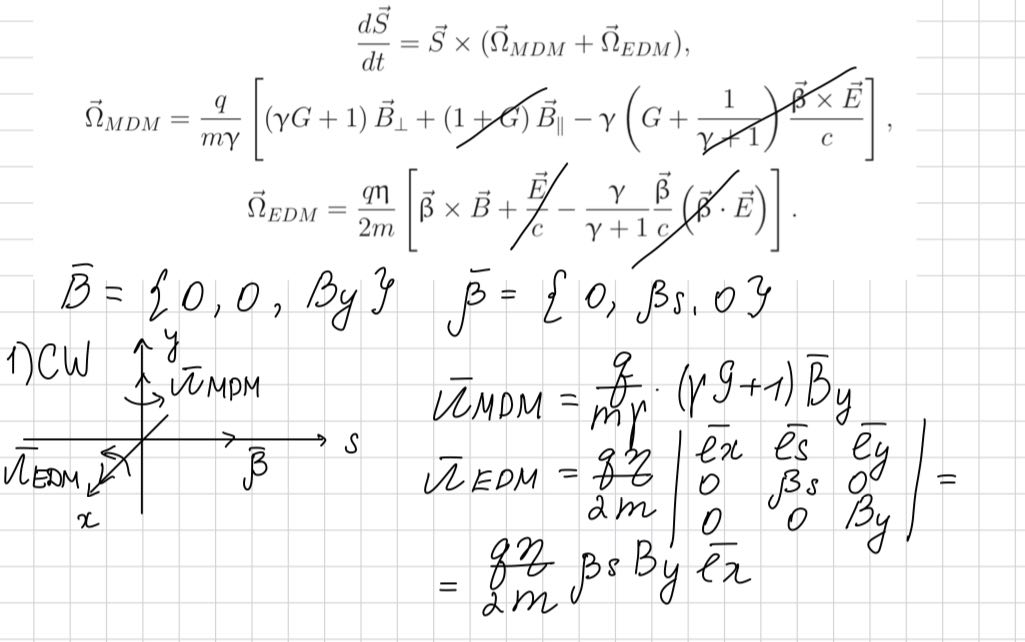 dS⃗/dt = S⃗ × (Ω⃗_MDM + Ω⃗_EDM),
Ω⃗_MDM = q/mγ [(γG + 1) B⃗_⊥ + (1 + G) B⃗_∥ − γ (G + 1/(γ + 1)) (β⃗ × E⃗)/c],
Ω⃗_EDM = qη/2m [β⃗ × B⃗ + E⃗/c − γ/(γ + 1) β⃗/c (β⃗ · E⃗)].
B̄ = {0, 0, By} β̄ = {0, βs, 0}
1) CW
y
Ω̄_MDM
s
β̄
Ω̄_EDM
x
Ω̄_MDM = q/mγ · (γG+1) B̄y
Ω̄_EDM = qη/2m | ēx ēs ēy
0 βs 0
0 0 By | =
= qη/2m βs By ēx